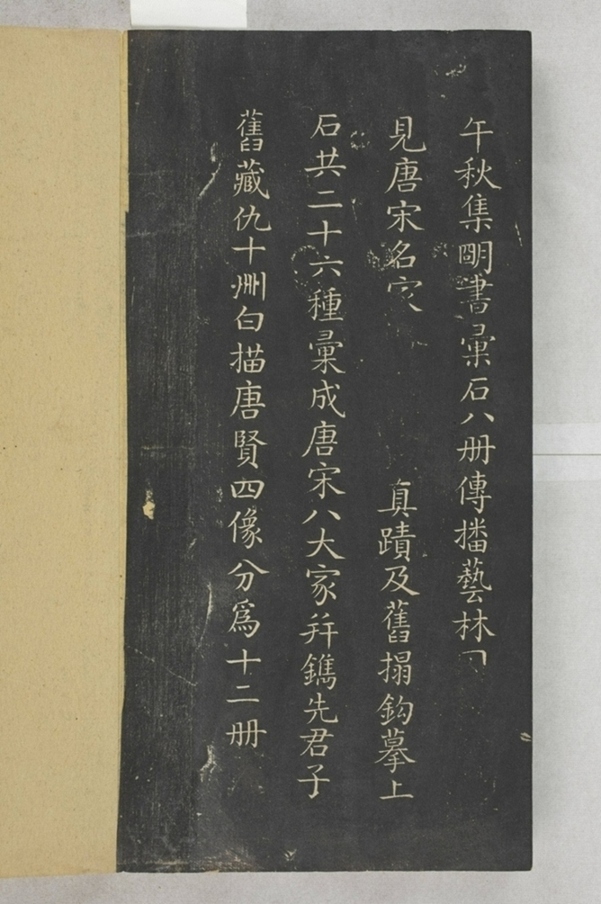 午秋集明書彙石八册傳播藝林
見唐宋名家 真蹟及舊搨鈎摹上
石共二十六種彙成唐宋八大家并鐫先君子
舊藏仇十洲白描唐賢四像分爲十二册